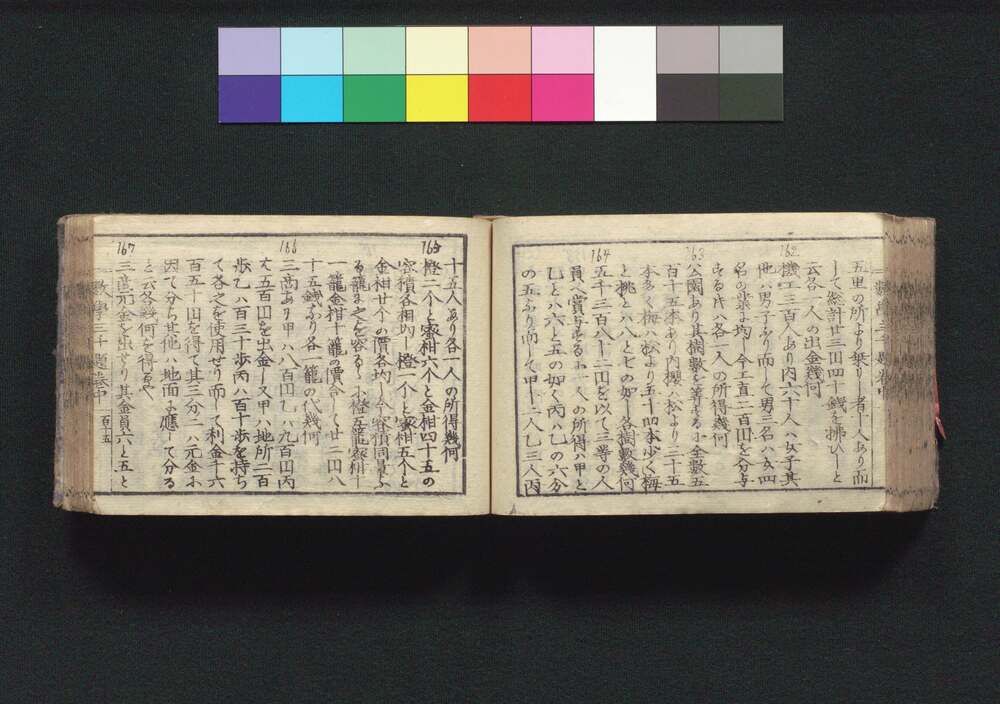 五里の所より乗りし者一人あり而
して総計廿三円四十銭を拂ひしと
云各一人の出金幾何
162
職工三百人あり内六十人ハ女子其
他ハ男子なり而して男三名ハ女四
名の業に均し今工直二百円を分与
する片ハ各一人の所得幾何
163
公園あり其樹數を算するに全數五
百十五本あり内櫻ハ松より三十五
本多く梅ハ松より五十四本少く梅
と桃とハ八と七の如し各樹數幾何
164
五千三百八十二円を以て三等の人
員へ賞与するに一人の所得ハ甲と
乙とハ六と五の如く丙ハ乙の六分
の五なり而して甲十二人乙三人丙
數學三千題巻中
十五人あり各一人の所得幾何
165
橙二个と蜜柑六个と金柑四十五の
容積各相均し橙一个と蜜柑五个と
金柑廿个の價各均し今容積同量な
る籠に之を容るゝに橙五籠蜜柑十
一籠金柑十籠の價合して廿二円八
十五銭なり各一籠の代幾何
166
三商あり甲ハ八百円乙ハ九百円丙
ハ五百円を出金し又甲ハ地所二百
歩乙ハ百三十歩丙ハ百十歩を持ち
て各之を使用せり而して利金千六
百五十円を得て其三分二ハ元金に
因て分ち其他ハ地面に應して分る
と云各幾何を得るや
167
三商元金を出せり其金員六と五と
數學三千題巻中
百十五